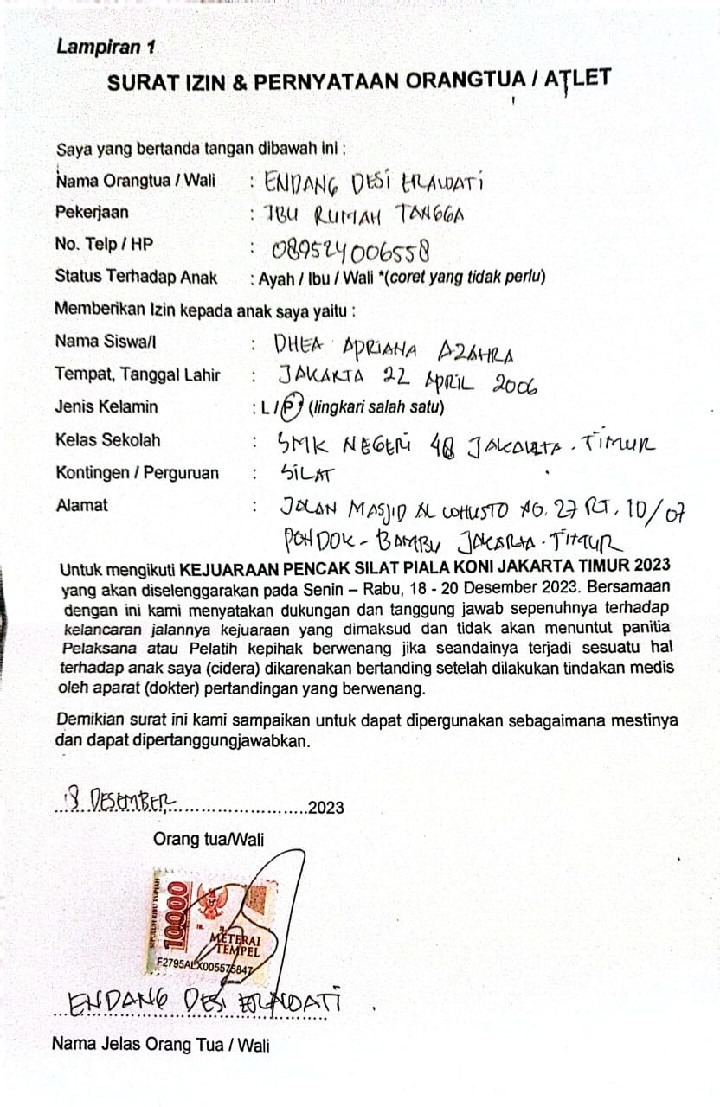 Lampiran 1
SURAT IZIN & PERNYATAAN ORANGTUA / ATLET
Saya yang bertanda tangan dibawah ini :
Nama Orangtua / Wali : ENDANG DESI ERAWATI
Pekerjaan : IBU RUMAH TANGGA
No. Telp / HP : 089524006558
Status Terhadap Anak : Ayah / Ibu / Wali *(coret yang tidak perlu)
Memberikan Izin kepada anak saya yaitu :
Nama Siswa/I : DHEA APRIANA AZAHRA
Tempat, Tanggal Lahir : JAKARTA 22 APRIL 2006
Jenis Kelamin : L / P (lingkari salah satu)
Kelas Sekolah : SMK NEGERI 48 JAKARTA . TIMUR
Kontingen / Perguruan : SILAT
Alamat : JALAN MASJID AL 27 RT. 10/07
PONDOK - BAMBU JAKARTA . TIMUR
Untuk mengikuti KEJUARAAN PENCAK SILAT PIALA KONI JAKARTA TIMUR 2023
yang akan diselenggarakan pada Senin – Rabu, 18 - 20 Desember 2023. Bersamaan
dengan ini kami menyatakan dukungan dan tanggung jawab sepenuhnya terhadap
kelancaran jalannya kejuaraan yang dimaksud dan tidak akan menuntut panitia
Pelaksana atau Pelatih kepihak berwenang jika seandainya terjadi sesuatu hal
terhadap anak saya (cidera) dikarenakan bertanding setelah dilakukan tindakan medis
oleh aparat (dokter) pertandingan yang berwenang.
Demikian surat ini kami sampaikan untuk dapat dipergunakan sebagaimana mestinya
dan dapat dipertanggungjawabkan.
DESEMBER 2023
Orang tua/Wali
10000
METERAI
TEMPEL
ENDANG DESI ERAWATI
Nama Jelas Orang Tua / Wali